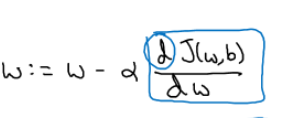 w := w - α d J(w,b) / dw